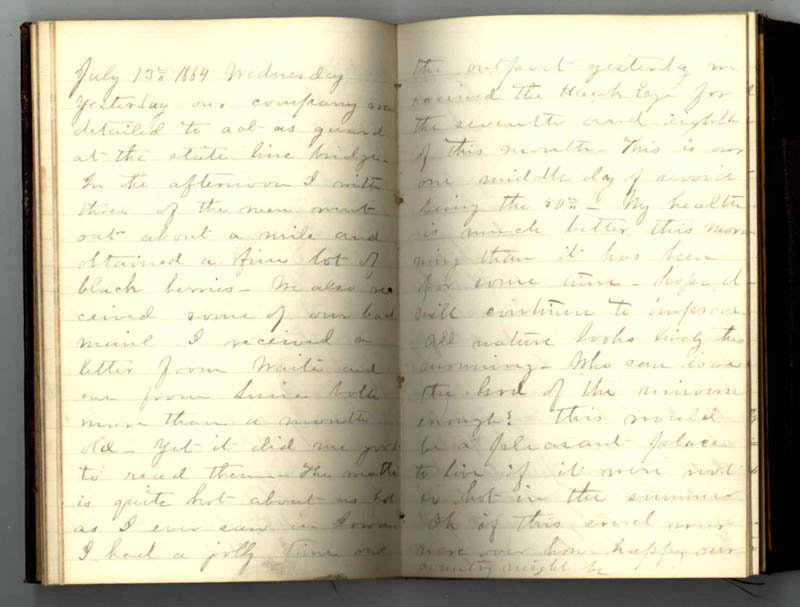 July 13th 1864 Wednesday
Yesterday our company was
detailed to act as guard
at the state line bridge -
In the afternoon I with
three of the men went
out about a mile and
obtained a fine lot of
black berries - We also re
ceived some of our back
mail I received a
letter from Waite and
one from Susie both
more than a month
old - Yet it did me good
to read them - The weather
is quite hot about as hot
as I ever saw in Iowa
I had a jolly time on
the outpost yesterday we
received the Hawk Eye for
the seventh and eighth
of this month - This is our
one middle day of service
being the 50th - My health
is much better this mor-
ning than it has been
for some time - hope it
will continue to improve
All nature looks lively this
morning - Who can love
the God of the universe
enough? This would
be a pleasant place
to live if it were not
so hot in the summer
Oh if this cruel war
were over how happy our
country might be